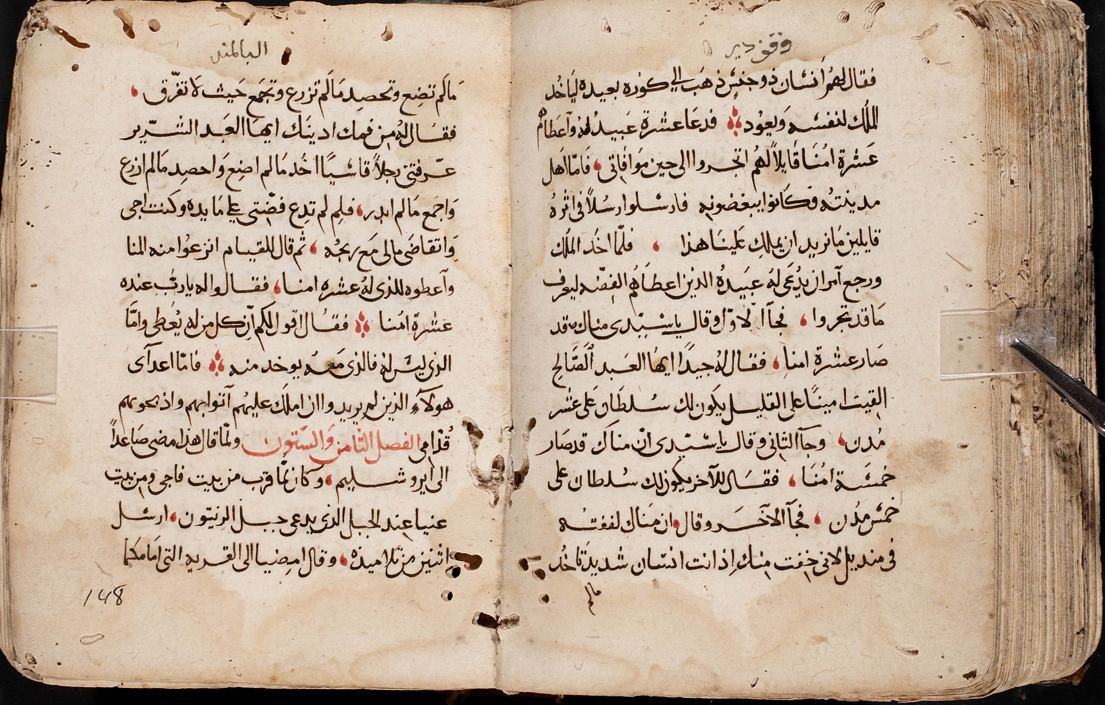 وقف دير
فقال لهم انسان ذو جنس ذهب الي كوره بعيده لياخد
الملك لنفسه ويعود فدعا عشرة عبيد له واعطاهم
عشرة امنا قايلاً لهم اتجروا الى حين موافاتي فاما اهل
مدينته فكانوا يبغضونه فارسلوا رسلاً في اثره
قايلين ما نريد ان يملك علينا هذا فلما اخد الملك
ورجع امر ان يدعى له عبيده الذين اعطاهم الفضه ليعرف
ما قد تجروا فجآ الاول وقال يا سيدى مناك قد
صار عشرة امنا فقال له جيداً ايها العبد الصالح
الفيت امينا على القليل يكون لك سلطان على عشر
مدن وجآ الثاني وقال يا سيدى ان مناك قد صار
خمسة امنا فقال للاخر يكون لك سلطان على
خمس مدن فجآ الاخر وقال ان مناك لففته
في منديل لاني خفت منك اذ انت انسان شديد تاخد
مالم
البلمند
مالم تضع وتحصد مالم تزرع وتجمع حيث لا تفرق
فقال له من فمك ادينك ايها العبد الشرير
عرفتني رجلاً قاسيًا اخد مالم اضع واحصد مالم ازرع
واجمع مالم ابدر فلم لم تدع فضتى على مايده وكنت اجى
واتقاضى مالى مع ربحه ثم قال للقيام انزعوا منه المنا
واعطوه للذى له عشره امنا فقالوا له يا رب عنده
عشرة امنا فقال اقول لكم ان كل من له يعطى واما
الذى ليس له فالذى معه يوخد منه فاما اعدآى
هولآء الذين لم يريدوا ان املك عليهم آتوا بهم واذبحوهم
قدامي الفصل الثامن والستون ولما قال هذا مضى صاعداً
الى ايروشليم وكان لما قرب من بيت فاجي ومن بيت
عنيا عند الجبل الذى يدعى جبل الزيتون ارسل
اثنين من تلاميذه وقال امضيا الى القريه التى امامكما
148